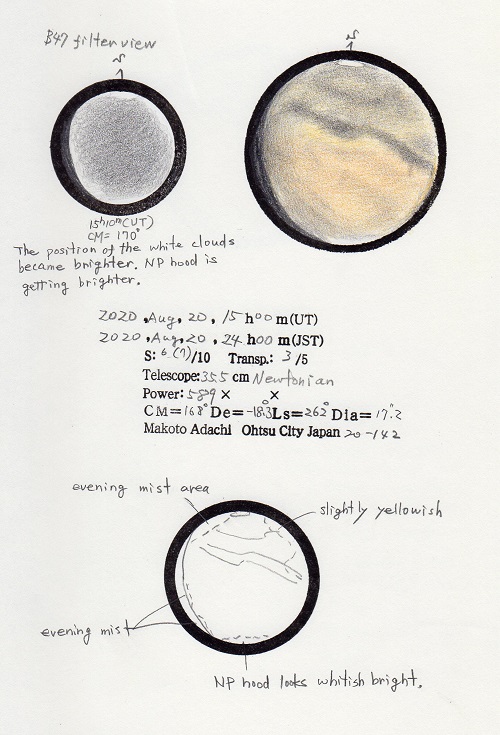 B47 filter view
S
S
15h10m(UT)
CM=170°
The position of the white clouds
became brighter. NP hood is
getting brighter.
2020, Aug, 20, 15 h00 m(UT)
2020, Aug, 20, 24 h00 m(JST)
S: 6 (7)/10 Transp.: 3 /5
Telescope: 35.5 cm Newtonian
Power: 589 × ×
CM=168° De=-18.3 Ls=262° Dia=17.″2
Makoto Adachi Ohtsu City Japan 20-142
evening mist area
slightly yellowish
evening mist
NP hood looks whitish bright.